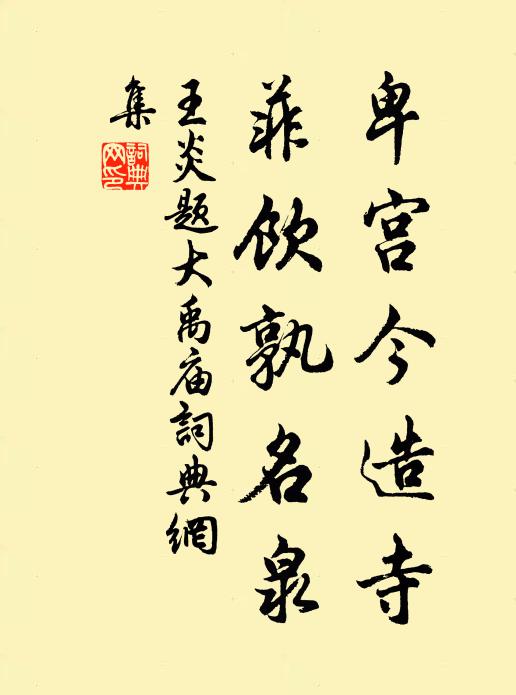 卑宫今造寺
菲饮孰名泉
王炎题大禹庙詞典網
集
詞典網印